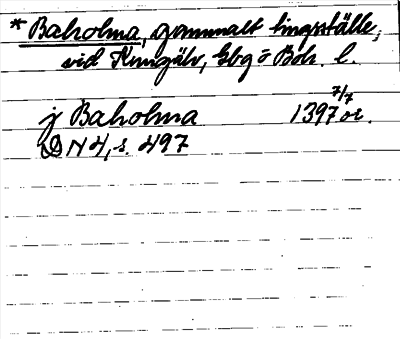 * Baholma, gammalt tingsställe,
vid Kungälv, Gbg o Boh. l.
7/7
j Baholma 1397 or.
DN 4, s. 497